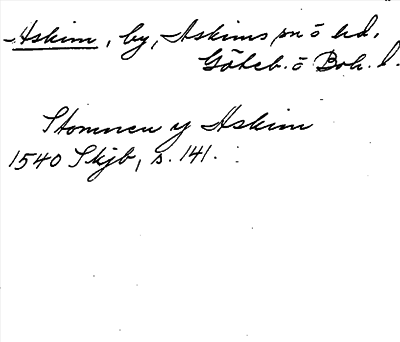 Askim, by, Askims sn o hd.
Göteb. o Boh. l.
Stommen y Askim
1540 Skjb, s. 141.